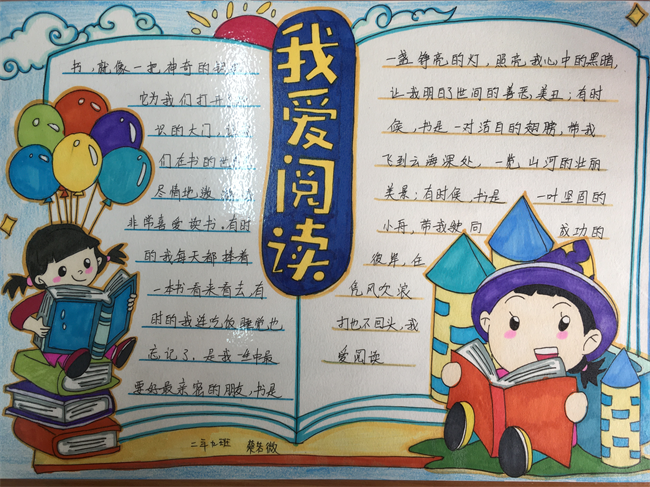 我爱阅读
书，就像一把神奇的
它为我们打开
识的大门，
们在书的世
尽情地
非常喜爱读书，有时
的我每天都捧着
一本书看来看去，有
时的我连吃饭睡觉也
忘记了，是我一生中最
要好最亲密的朋友，书是
一盏铮亮的灯，照亮我心中的黑暗，
让我明白了世间的善恶，美丑；有时
候，书是一对洁白的翅膀，带我
飞到云海深处，一览山河的壮丽
美景；有时候，书是一叶坚固的
小舟，带我驶向成功的
彼岸，任
凭风吹浪
打也不回头，我
爱阅读
二年九班